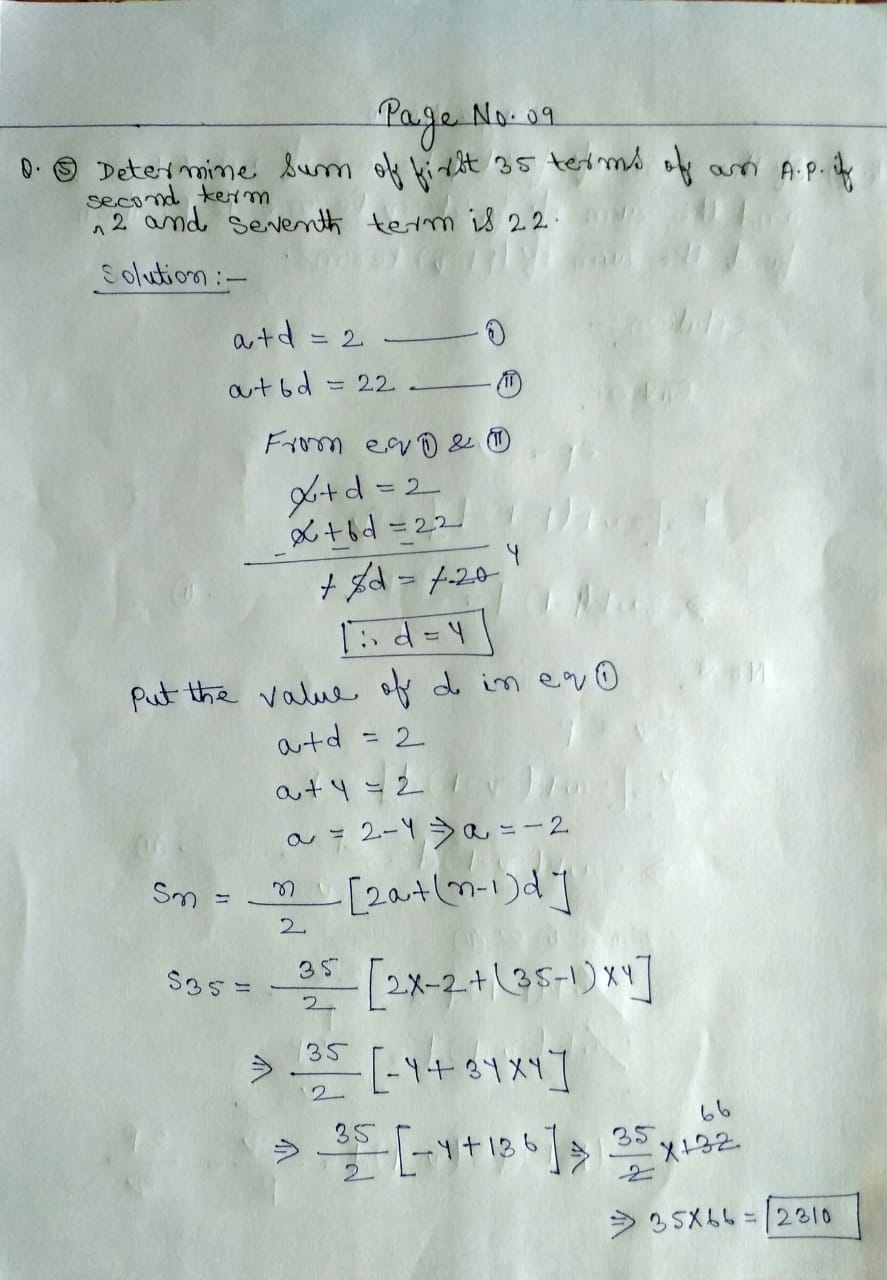 Page No. 09
Q. ⑤ Determine Sum of first 35 terms of an A.P. if
second term
^ 2 and seventh term is 22.
Solution :-
a+d = 2 —— ⓘ
a+6d = 22 —— ⓘⓘ
From eq ⓘ & ⓘⓘ
a+d = 2
a+6d = 22
- - -
+ 5d = +20 4
∴ d = 4
Put the value of d in eq ⓘ
a+d = 2
a+4 = 2
a = 2-4 ⇒ a = -2
Sn = n/2 [2a+(n-1)d]
S35 = 35/2 [2×-2+(35-1)×4]
⇒ 35/2 [-4+34×4]
⇒ 35/2 [-4+136] ⇒ 35/2 ×132 66
⇒ 35×66 = 2310